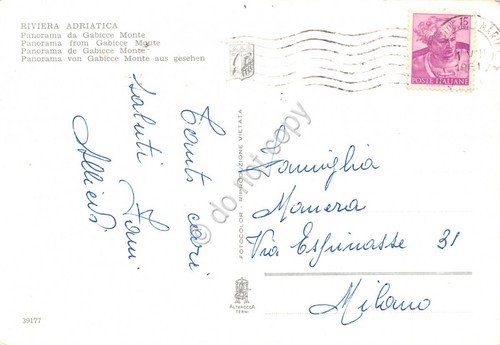 RIVIERA ADRIATICA
Panorama da Gabicce Monte
Panorama from Gabicce Monte
Panorama de Gabicce Monte
Panorama von Gabicce Monte aus gesehen
15
POSTE ITALIANE
Tanti cari
saluti
FOTOCOLOR - RIPRODUZIONE VIETATA
do not copy
Famiglia
Manera
Via Esfinasse 31
Milano
ALTEROCCA
TERNI
39177